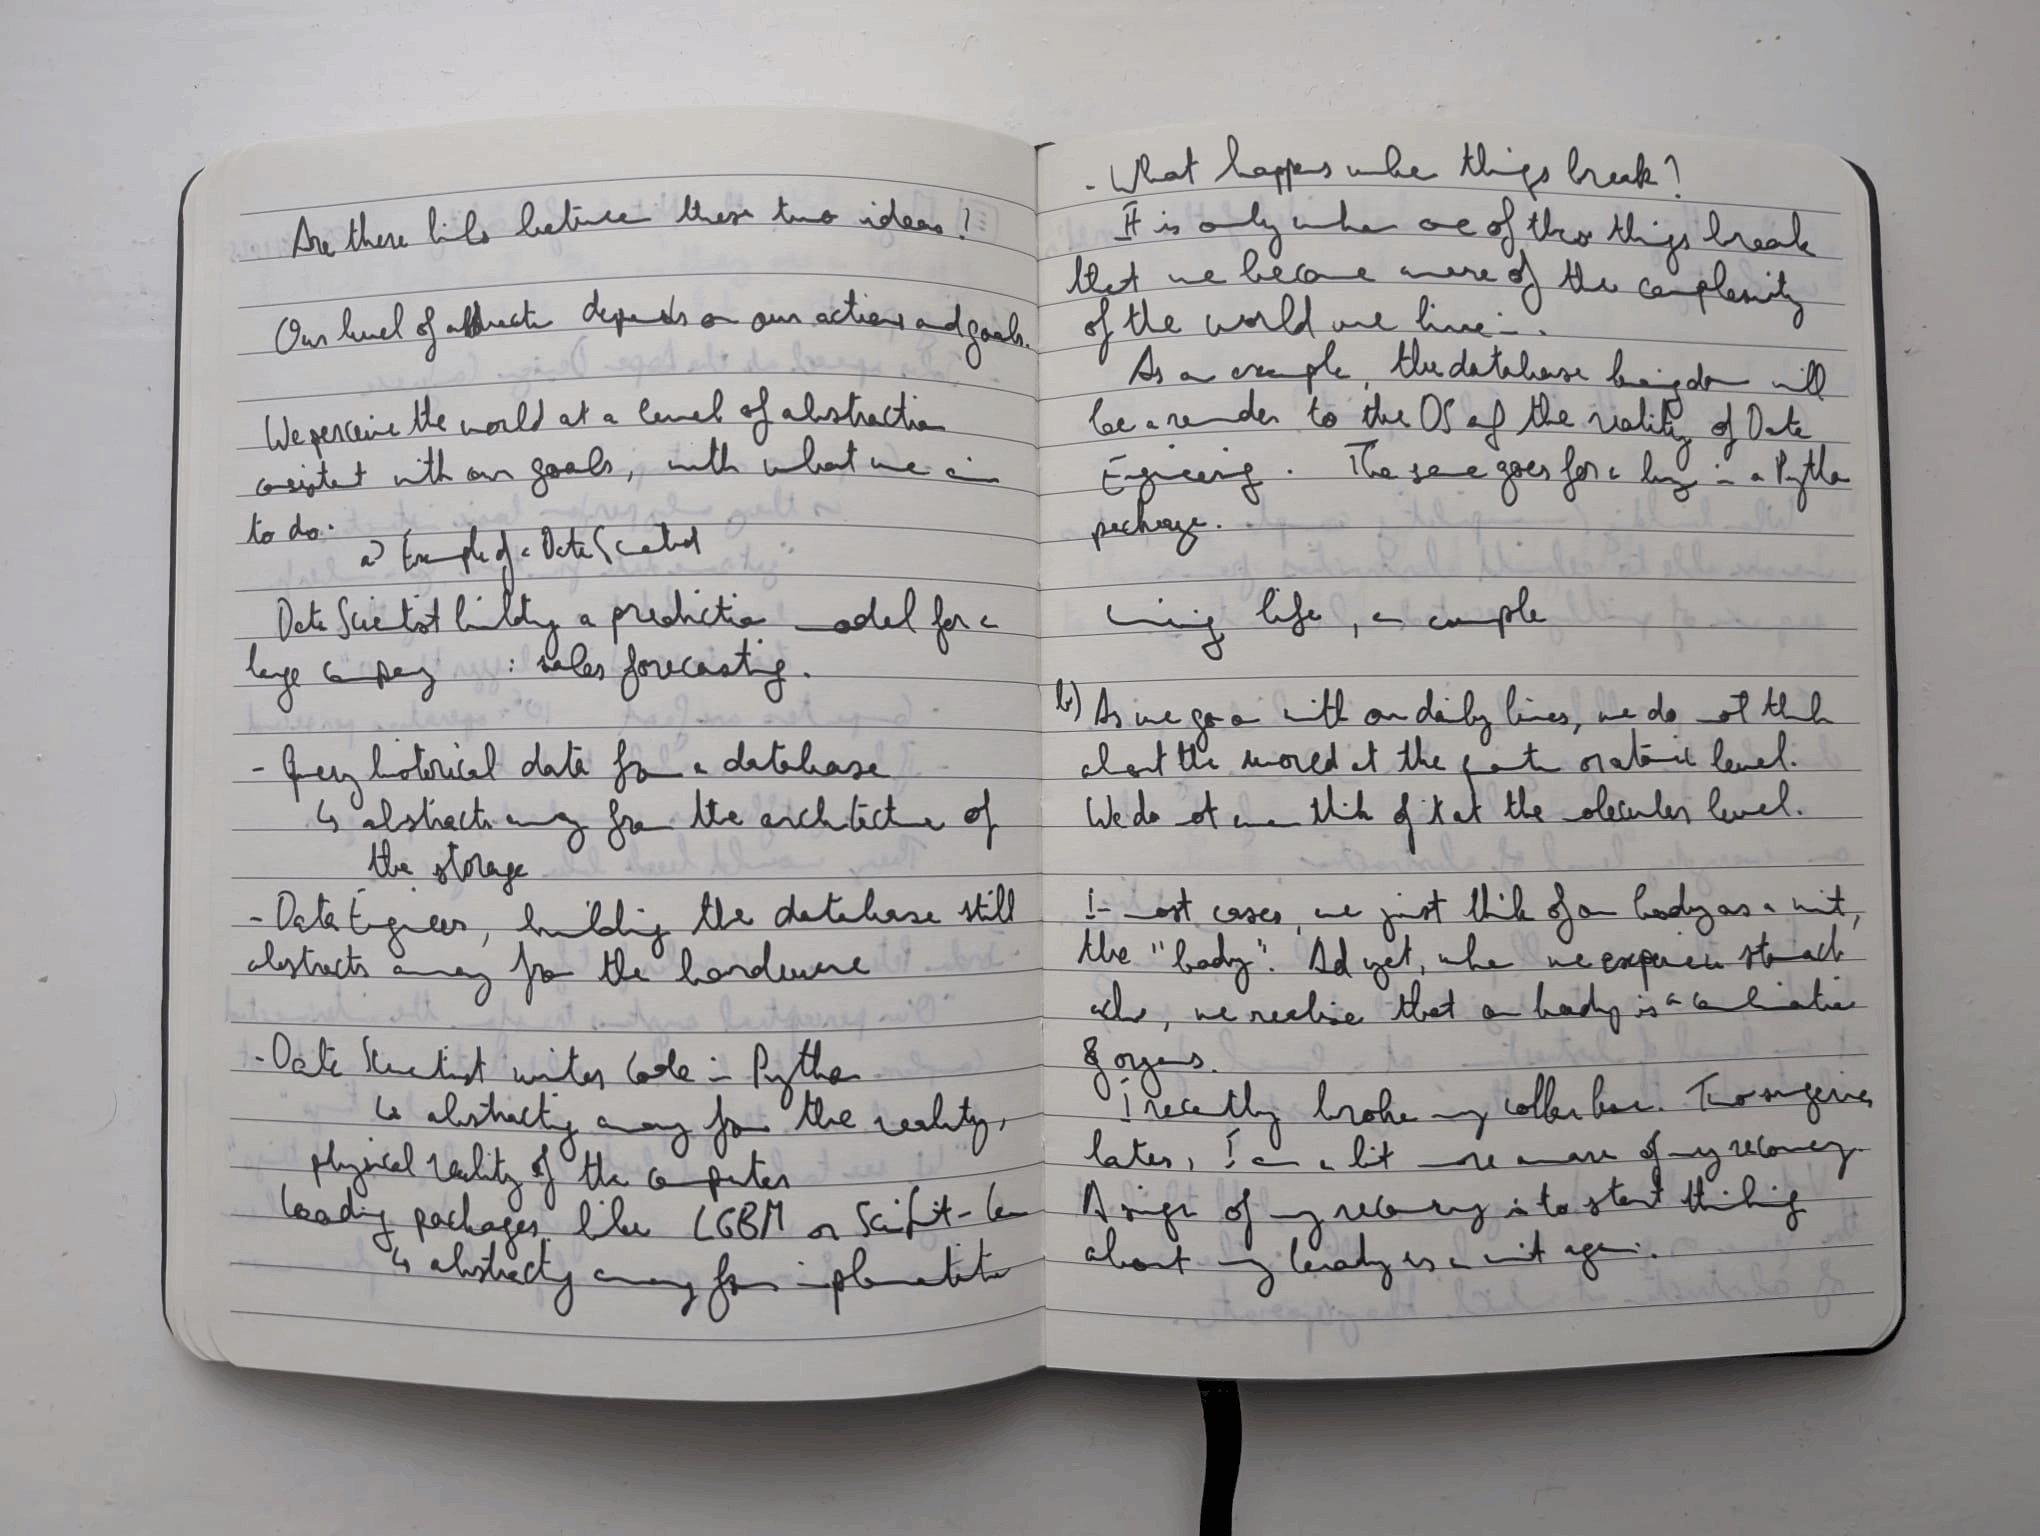 Are there links between these two ideas?
Our level of abstraction depends on our actions and goals.
We perceive the world at a level of abstraction
consistent with our goals, with what we aim
to do.
a) Example of a Data Scientist
Data Scientist building a prediction model for a
large company : sales forecasting.
- Query historical data from a database
↳ abstracts away from the architecture of
the storage
- Data Engineer, building the database still
abstracts away from the hardware
- Data Scientist writes code in Python
↳ abstracting away from the reality,
physical reality of the computer
loading packages like LGBM or Scikit-learn
↳ abstracting away from implementation
- What happens when things break?
It is only when one of those things break
that we become aware of the complexity
of the world we live in.
As an example, the database being down will
be a reminder to the DS of the reality of Data
Engineering. The same goes for a bug in a Python
package.
life, an example
b) As we go on with our daily lives, we do not think
about the world at the or atomic level.
We do not even think of it at the molecular level.
In most cases, we just think of our body as a unit,
the "body". And yet, when we experience stomach
ache, we realise that our body is a combination
of organs.
I recently broke my collar bone. Two surgeries
later, I am a bit more aware of my recovery.
A sign of my recovery is to start thinking
about my body as a unit again.